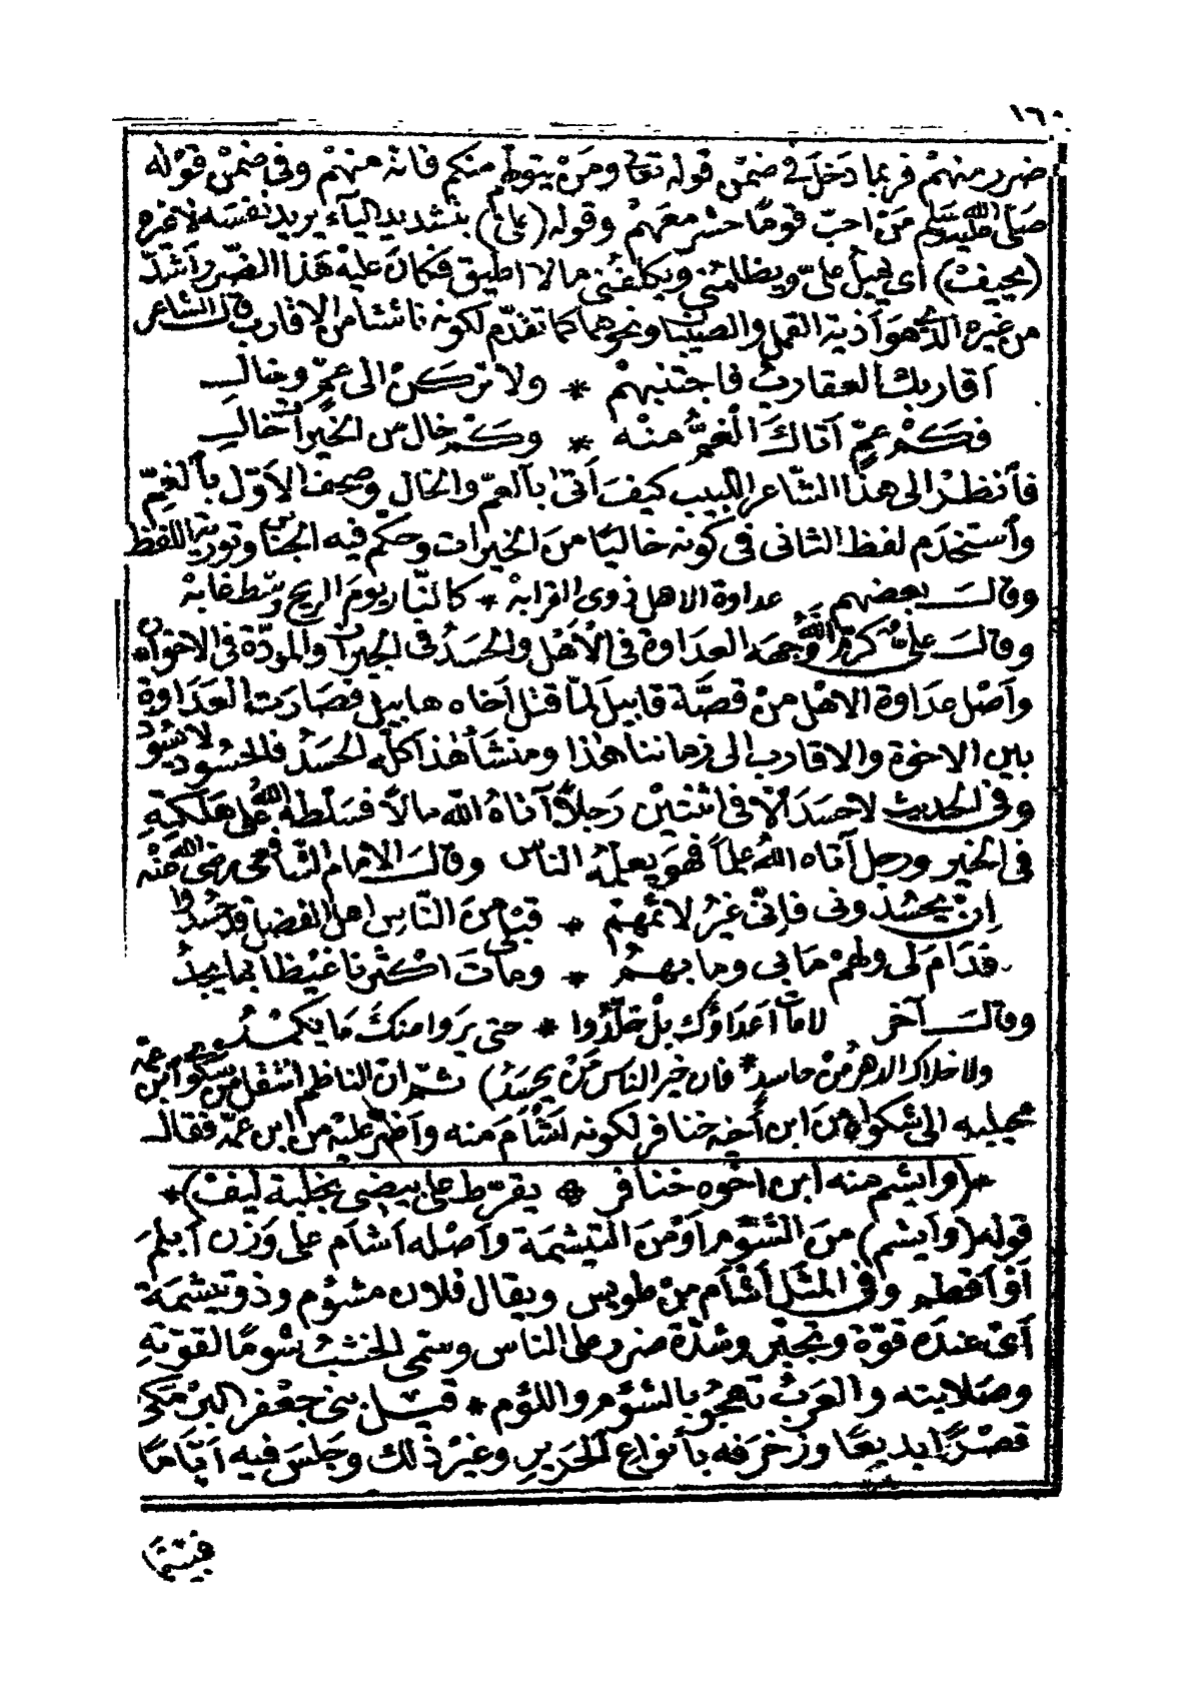 ١٦٠
ضرر منهم فربما دخل في ضمن قوله تعالى ومن يتولهم منكم فانه منهم وفي ضمن قوله
صلى الله عليه وسلم من احب قوما حشر معهم وقوله (علىّ) بتشديد الياء يريد نفسه لا غيره
(يحيف) أي يميل علىّ ويظلمني ويكلفني ما لا اطيق فكان عليه هذا الضرر أشدّ
من غيره الذى هو أذية القمل والصيبان ونحوهما كما تقدّم لكونه ناشئا من الاقارب قال الشاعر
أقاربك العقارب فاجتنبهم * ولا تركن الى عمّ وخال
فكم عمّ أتاك الغمّ منه * وكم خال من الخيرات خال
فأنظر الى هذا الشاعر اللبيب كيف أتى بالعمّ والخال وصحف الاوّل بالغمّ
وأستخدم لفظ الثاني في كونه خاليًا من الخيرات وحكم فيه الجناس وتورية اللفظ
وقال بعضهم عداوة الاهل ذوى القرابه * كالنّار يوم الريح وسط غابه
وقال علىّ كرم الله وجهه العداوة في الأهل والحسد في الجيران والمودّة في الاخوان
وأصل عداوة الاهل من قصّة قابيل لمّا قتل أخاه هابيل فصارت العداوة
بين الاخوة والاقارب الى زماننا هذا ومنشأ هذا كلّه الحسد فالحسود لا يسود
وفي الحديث لا حسد الّا في اثنتين رجلاً آتاه الله مالاً فسلّطه الله على هلكته
في الخير ورجل آتاه الله علماً فهو يعلمه الناس وقال الامام الشافعى رضى الله عنه
إن يحسدوني فإنّي غير لائمهم * قبلى من النّاس اهل الفضل قد حسدوا
فدام لى ولهم ما بي وما بهم * ومات اكثرنا غيظا بما يجد
وقال آخر لا مات أعداؤك بل خلّدوا * حتى يروا منك ما يكمد
ولا خلاك الدهر من حاسدٍ * فان خير الناس من يحسد) ثمّ ان الناظم انتقل من شكوى ابن عمّه
محيلبه الى شكواه من ابن أخيه خنافر لكونه أشأم منه وأضرّ عليه من ابن عمّه فقال
*(وايشم منه ابن اخوه خنافر * يقرّط على بيضى بخلبة ليف)*
قوله (وأيشم) من الشّؤم أو من التيشمة وأصله أشأم على وزن أبلم
أو أفطم وفي المثل أشأم من طويس ويقال فلان مشؤم وذو تيشمة
أي عنده قوّة وتجبّر وشدّة ضرر على الناس وسمّى الخشب شومًا لقوّته
وصلابته والعرب تهجو بالشؤم واللؤم * قيل بنى جعفر البرمكى
قصرًا بديعًا وزخرفه بأنواع الحرير وغير ذلك وجلس فيه أيّامًا